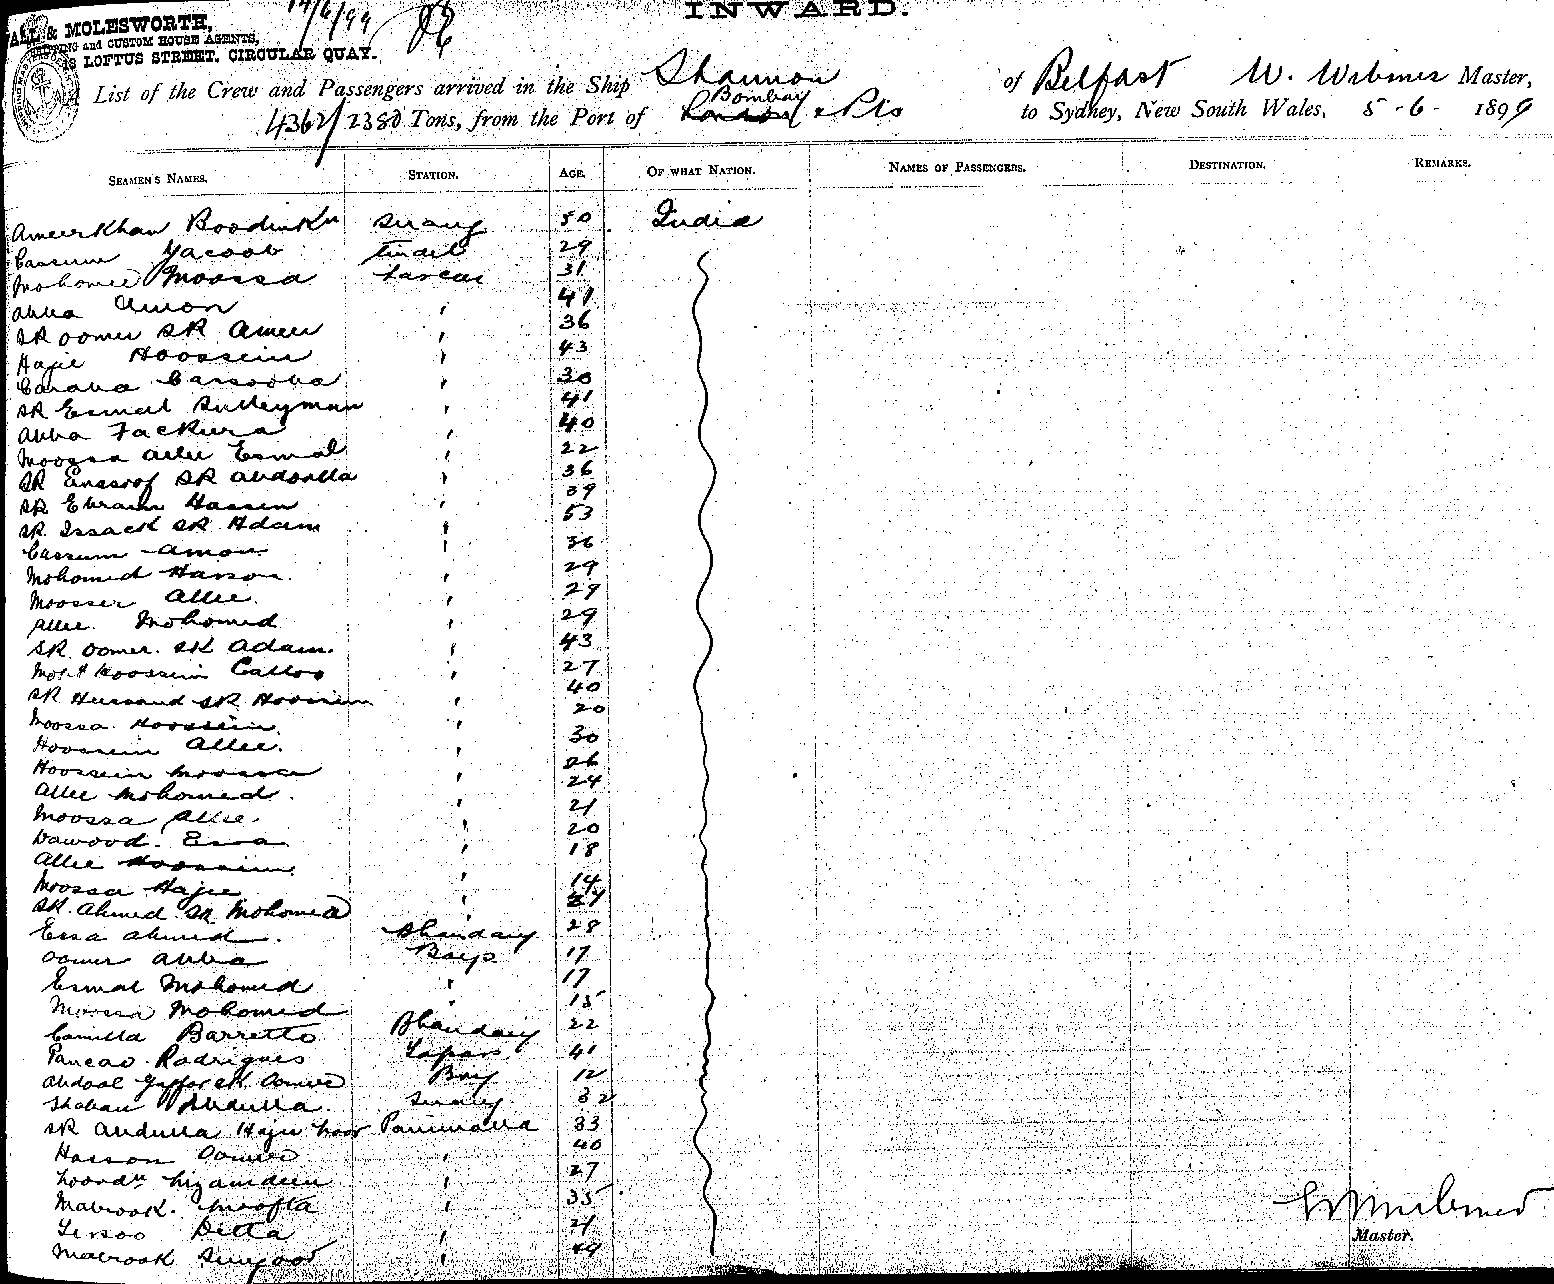 14/6/99
INWARD.
ALL & MOLESWORTH,
SHIPPING and CUSTOM HOUSE AGENTS,
LOFTUS STREET, CIRCULAR QUAY.
List of the Crew and Passengers arrived in the Ship Shannon of Belfast W. Master,
4362/2380 Tons, from the Port of London Bombay & Pts to Sydney, New South Wales, 5-6- 1899
SEAMEN'S NAMES. STATION. AGE. OF WHAT NATION. NAMES OF PASSENGERS. DESTINATION. REMARKS.
Ameerkhan Boodinkn Serang 50 India
Cassum Yacoob Tindel 29
Mohomed Moossa Lascar 31
Abba Amon " 41
SK Oomer SK Ameer " 36
Hajie Hoossein " 43
Caraba Cassooba " 30
SK Esmal Sulleyman " 41
Abba Fackira " 40
Moossa Allee Esmal " 22
SK Enssoof SK Abdoolla " 36
SK Ebraim Hassen " 39
SK. Issack SK Adam " 53
Cassum Amon " 36
Mohomed Hasson " 29
Moosser Allee " 29
Allee Mohomed " 29
SK Oomer. SK Adam. " 43
Mohd Hoossein Calloo " 27
SK SK Hoossein " 40
Moossa Hoossein " 20
Hoossein Allee. " 30
Hoossein Moossa " 26
Allee Mohomed. " 24
Moossa Allee. " 21
Dawood. Essa " 20
Allee Hoossein " 18
Moossa Hajee " 14
SK. Ahmed. SK Mohomed "
Essa Ahmed. Bhandary 28
Oomer Abba Boys 17
Esmal Mohomed " 17
Moossa Mohomed " 15
Camilla Barretto Bhandary 22
Rodrigues Topas 41
Abdool Gaffor SK Oomer Boy 12
Shaban Abdulla Serang 32
SK Abdulla Hajee Noor Paniwalla 33
Hasson Oomer " 40
27
Mabrook. " 35
Ditta "
Mabrook " 49
Master.